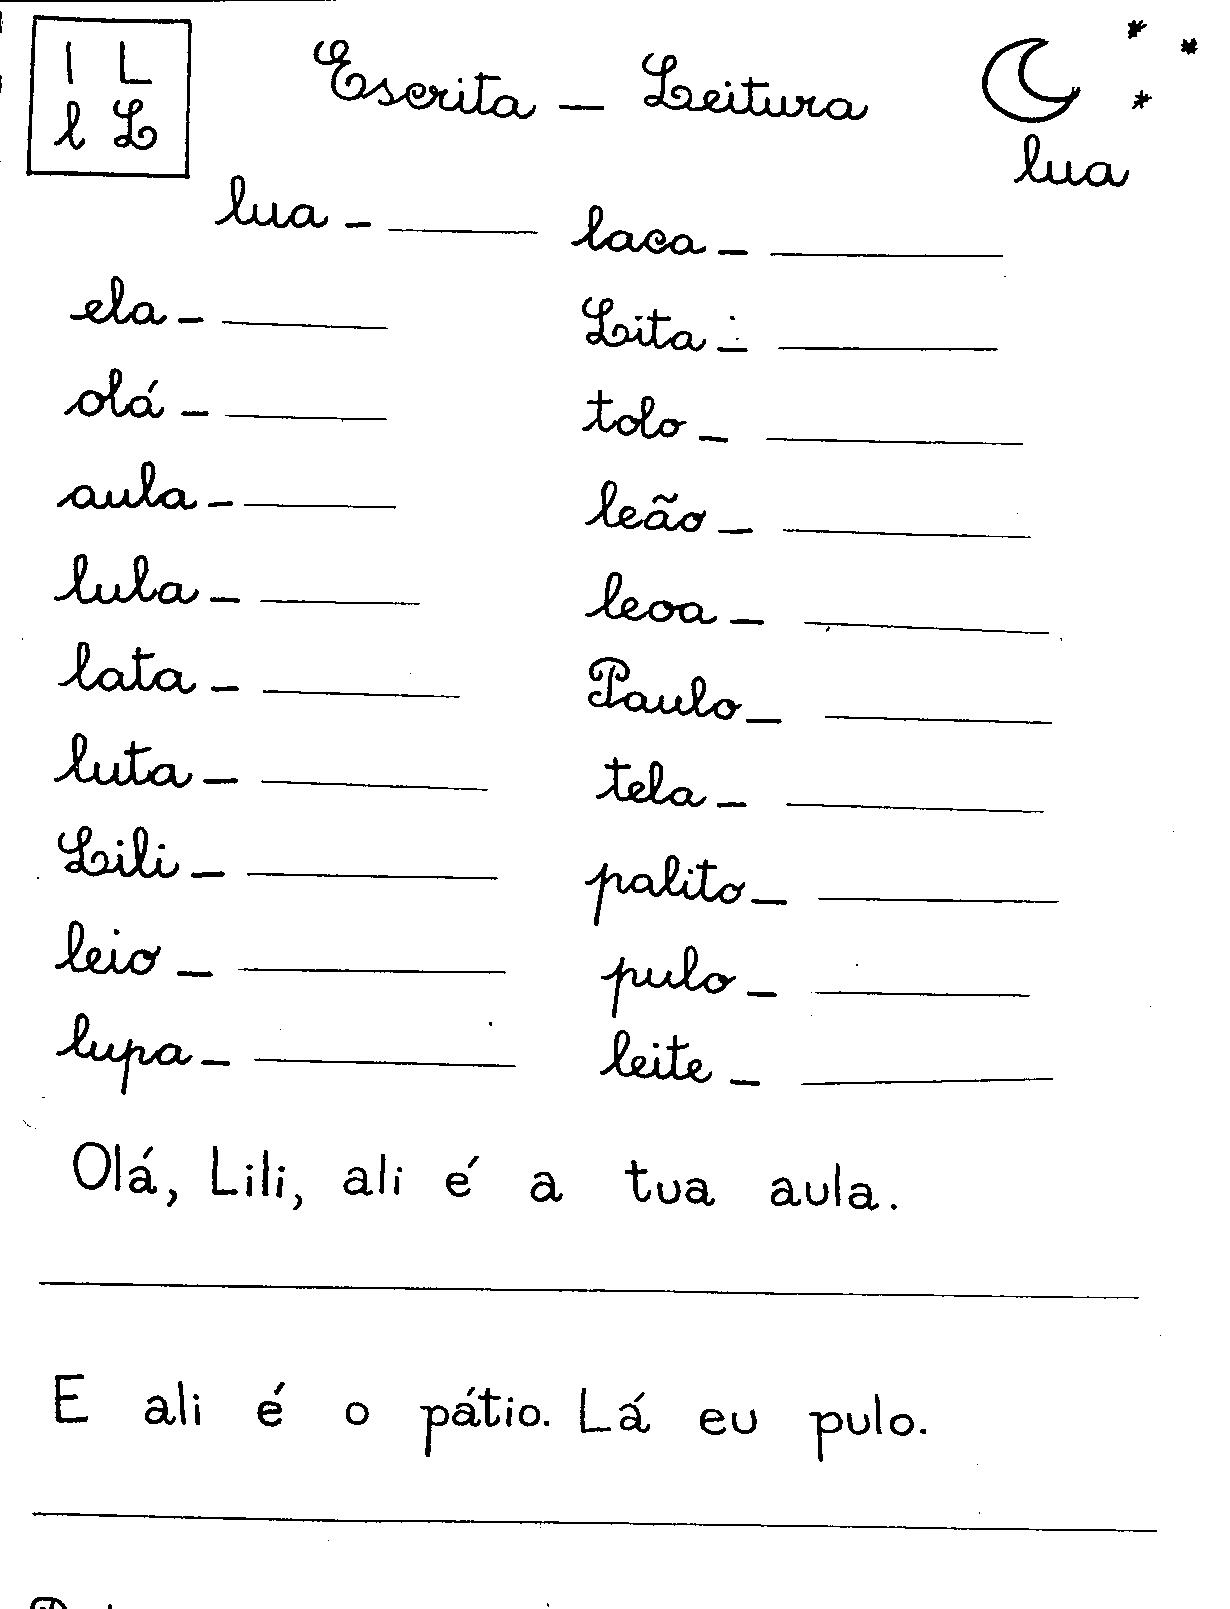 l L
l L
Escrita — Leitura
lua
lua - laca -
ela - Lita -
olá - tolo -
aula - leão -
lula - leoa -
lata - Paulo -
luta - tela -
Lili - palito -
leio - pulo -
lupa - leite -
Olá, Lili, ali é a tua aula.
E ali é o pátio. Lá eu pulo.